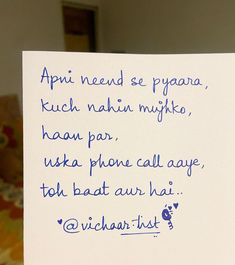 Apni neend se pyaara,
kuch nahin mujhko,
haan par,
uska phone call aaye,
toh baat aur hai..
@vichaar-list